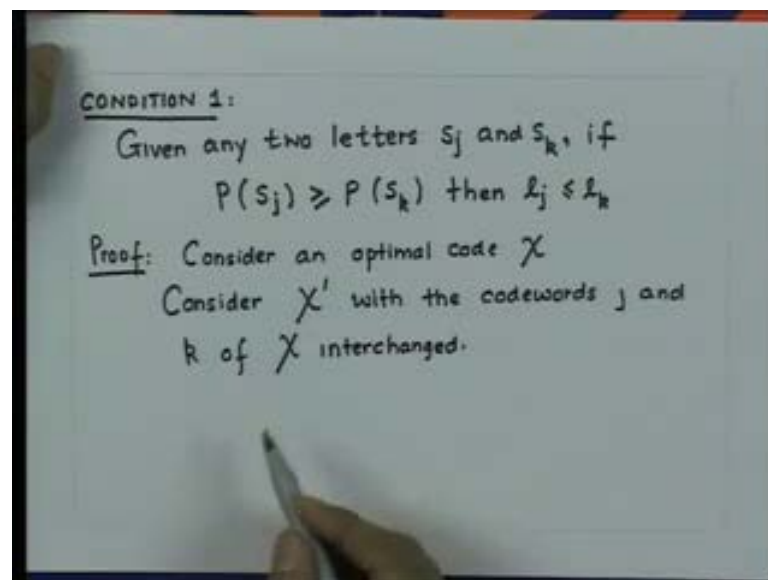 CONDITION 1:
Given any two letters Sj and Sk, if
P(Sj) ≥ P(Sk) then lj ≤ lk
Proof: Consider an optimal code X
Consider X' with the codewords j and
k of X interchanged.